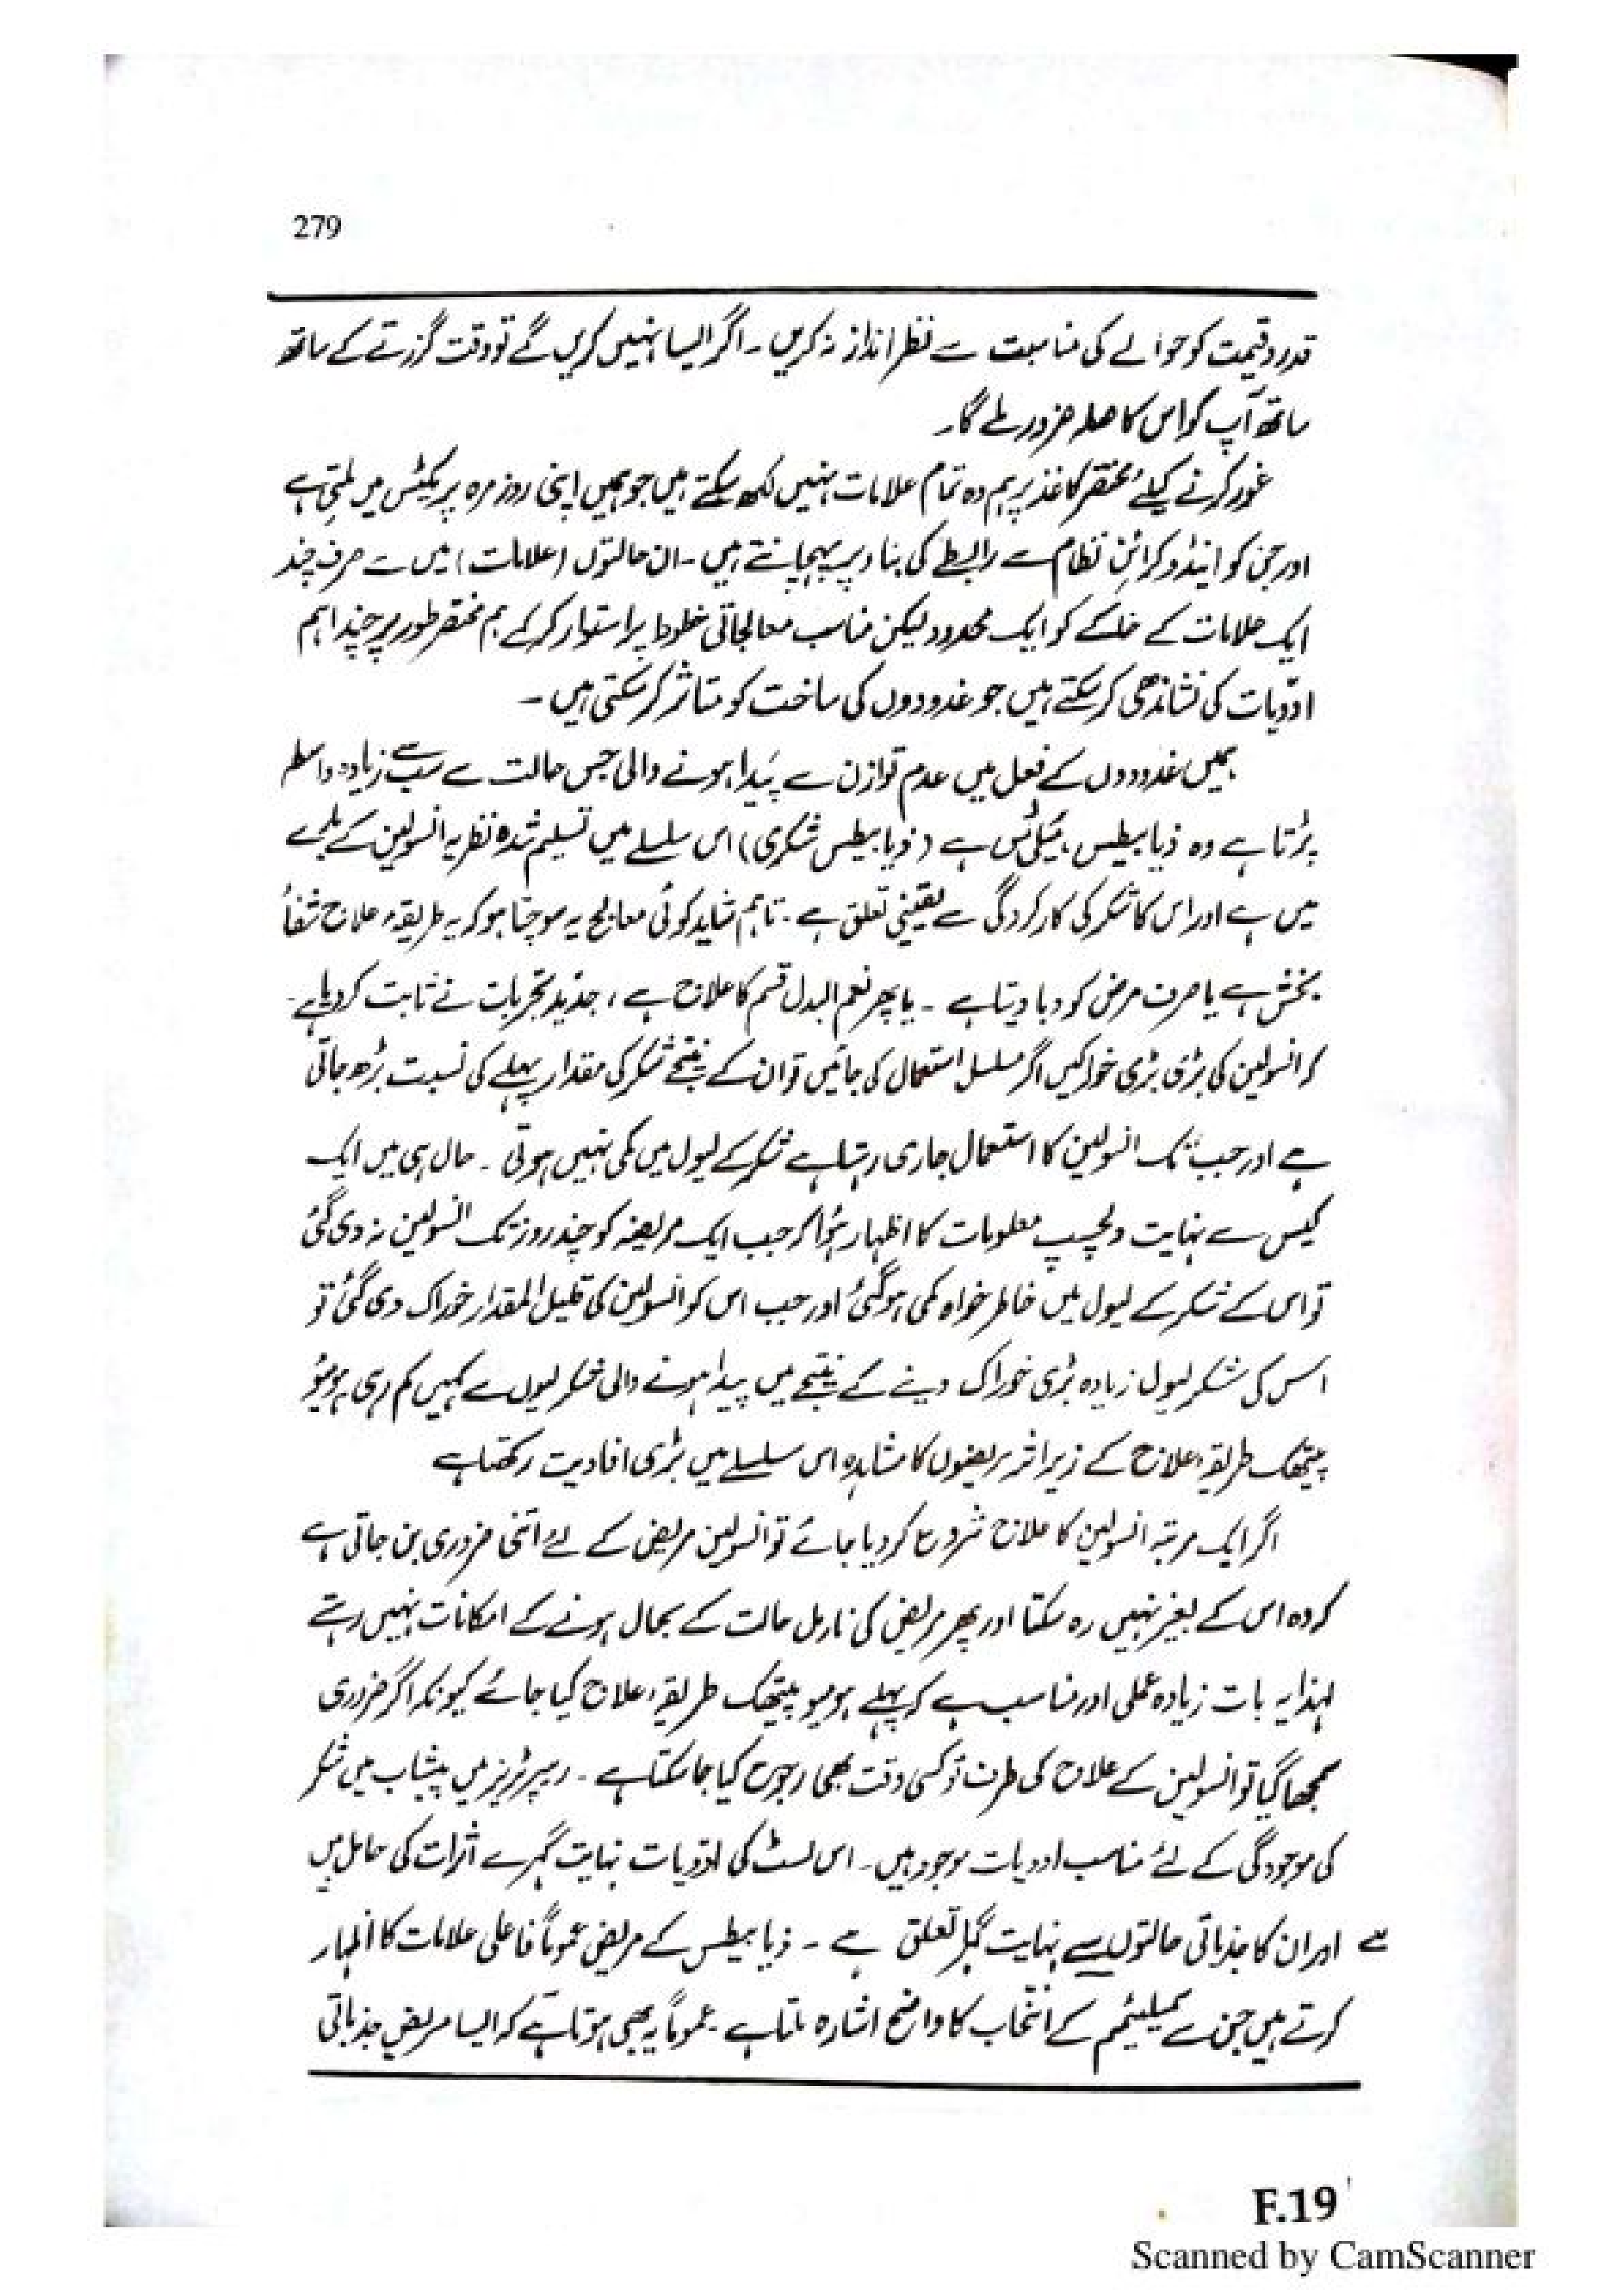 279
قدر و قیمت کو حوالے کی مناسبت سے نظر انداز نہ کریں۔ اگر ایسا نہیں کریں گے تو وقت گزرتے کے ساتھ
ساتھ آپ کو اس کا صلہ ضرور ملے گا۔
غور کرنے کیلئے مختصر کاغذ پر ہم وہ تمام علامات نہیں لکھ سکتے ہیں جو ہمیں اپنی روز مرہ پریکٹس میں ملتی ہے
اور جن کو اینڈوکرائن نظام سے رابطے کی بناء پر پہچانتے ہیں۔ ان حالتوں (علامات) میں سے صرف چند
ایک علامات کے خاکے کو ایک محدود لیکن مناسب معالجاتی خطوط پر استوار کر کے ہم مختصر طور پر چند اہم
ادویات کی نشاندھی کر سکتے ہیں جو غدودوں کی ساخت کو متاثر کر سکتی ہیں۔
ہمیں غدودوں کے فعل میں عدم توازن سے پیدا ہونے والی جس حالت سے سب سے زیادہ واسطہ
پڑتا ہے وہ ذیابیطس میلی ٹس ہے (ذیابیطس شکری) اس سلسلے میں تسلیم شدہ نظریہ انسولین کے بارے
میں ہے اور اس کا شکر کی کارکردگی سے یقینی تعلق ہے۔ تاہم شاید کوئی معالج یہ سوچتا ہو کہ یہ طریقہء علاج شفاء
بخش ہے یا صرف مرض کو دبا دیتا ہے۔ یا پھر نعم البدل قسم کا علاج ہے، جدید تجربات نے ثابت کر دیا ہے۔
کہ انسولین کی بڑی بڑی خوراکیں اگر مسلسل استعمال کی جائیں تو ان کے نتیجے شکر کی مقدار پہلے کی نسبت بڑھ جاتی
ہے اور جب تک انسولین کا استعمال جاری رہتا ہے شکر کے لیول میں کمی نہیں ہوتی۔ حال ہی میں ایک
کیس سے نہایت دلچسپ معلومات کا اظہار ہؤا کہ جب ایک مریضہ کو چند روز تک انسولین نہ دی گئی
تو اس کے شکر کے لیول میں خاطر خواہ کمی ہو گئی اور جب اس کو انسولین کی قلیل المقدار خوراک دی گئی تو
اس کی شکر لیول زیادہ بڑی خوراک دینے کے نتیجے میں پیدا ہونے والی شکر لیول سے کہیں کم رہی ہومیو
پیتھک طریقہء علاج کے زیر اثر مریضوں کا مشاہدہ اس سلسلے میں بڑی افادیت رکھتا ہے
اگر ایک مرتبہ انسولین کا علاج شروع کر دیا جائے تو انسولین مریض کے لئے اتنی ضروری بن جاتی ہے
کہ وہ اس کے بغیر نہیں رہ سکتا اور پھر مریض کی نارمل حالت کے بحال ہونے کے امکانات نہیں رہتے
لہذا یہ بات زیادہ عملی اور مناسب ہے کہ پہلے ہومیو پیتھک طریقہء علاج کیا جائے کیونکہ اگر ضروری
سمجھا گیا تو انسولین کے علاج کی طرف تو کسی وقت بھی رجوع کیا جا سکتا ہے۔ ریپرٹریز میں پیشاب میں شکر
کی موجودگی کے لئے مناسب ادویات موجود ہیں۔ اس لسٹ کی ادویات نہایت گہرے اثرات کی حامل ہیں
سے اور ان کا جذباتی حالتوں سے نہایت گہرا تعلق ہے۔ ذیابیطس کے مریض عموماً خاعلی علامات کا اظہار
کرتے ہیں جن سے کے انتخاب کا واضح اشارہ ملتا ہے۔ عموماً یہ بھی ہوتا ہے کہ ایسا مریض جذباتی
F.19
Scanned by CamScanner